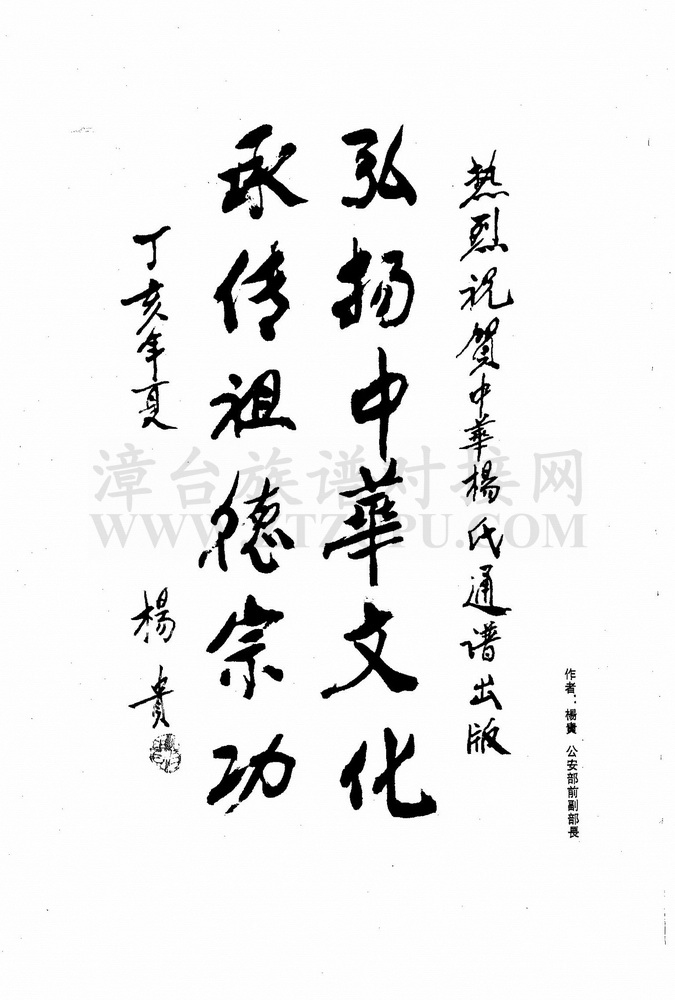 熱烈祝賀中華楊氏通谱出版
弘扬中華文化
承传祖德宗功
丁亥年夏
楊貴
作者：楊貴 公安部前副部長
漳台族谱对接网